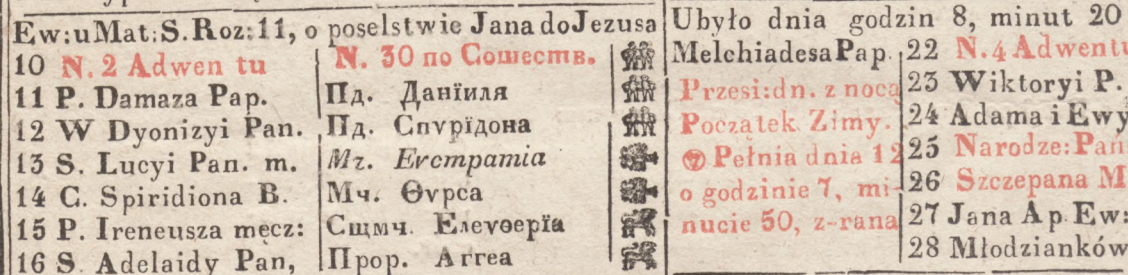 Ew:uMat:S.Roz:11, o poselstwie Jana doJezusa
10 N. 2 Adwen tu
11 P. Damaza Pap.
12 W Dyonizyi Pan.
13 S. Lucyi Pan. m.
14 C. Spiridiona B.
15 P. Ireneusza męcz:
16 S Adelaidy Pan,
N. 30 по Сошеств.
Пд. Данїиля
Пд. Спѵрїдона
Мч. Еѵстратіа
Мч. Ѳѵрса
Сщмч. Елеѵѳерїа
Прор. Аггеа
Ubyło dnia godzin 8, minut 20
MelchiadesaPap.
Przesi:dn. z nocą
Początek Zimy.
Pełnia dnia 12
o godzinie 7, mi-
nucie 50, z-rana
22 N.4 Adwentu
23 Wiktoryi P.
24 Adama i Ewy
25 Narodze:Pań
26 Szczepana M
27 Jana Ap. Ew:
28 Młodzianków